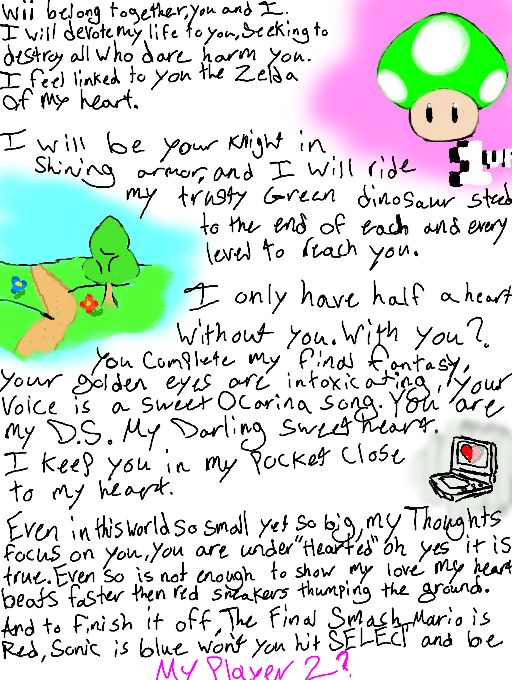 Wii belong together, you and I.
I will devote my life to you, seeking to
destroy all who dare harm you.
I feel linked to you the Zelda
of my heart.
I will be your knight in
Shining armor, and I will ride
my trusty Green dinosaur steed
to the end of each and every
level to reach you.
I only have half a heart
Without you. With you?
You Complete my final fantasy,
your golden eyes are intoxicating, your
Voice is a sweet Ocarina song. You are
my D.S. My Darling sweetheart.
I keep you in my Pocket close
to my heart.
Even in this world so small yet so big, my Thoughts
focus on you, you are under "Hearted" oh yes it is
true. Even so is not enough to show my love my heart
beats faster then red sneakers thumping the ground.
And to finish it off, The Final Smash, Mario is
Red, Sonic is blue won't you hit SELECT and be
My Player 2?